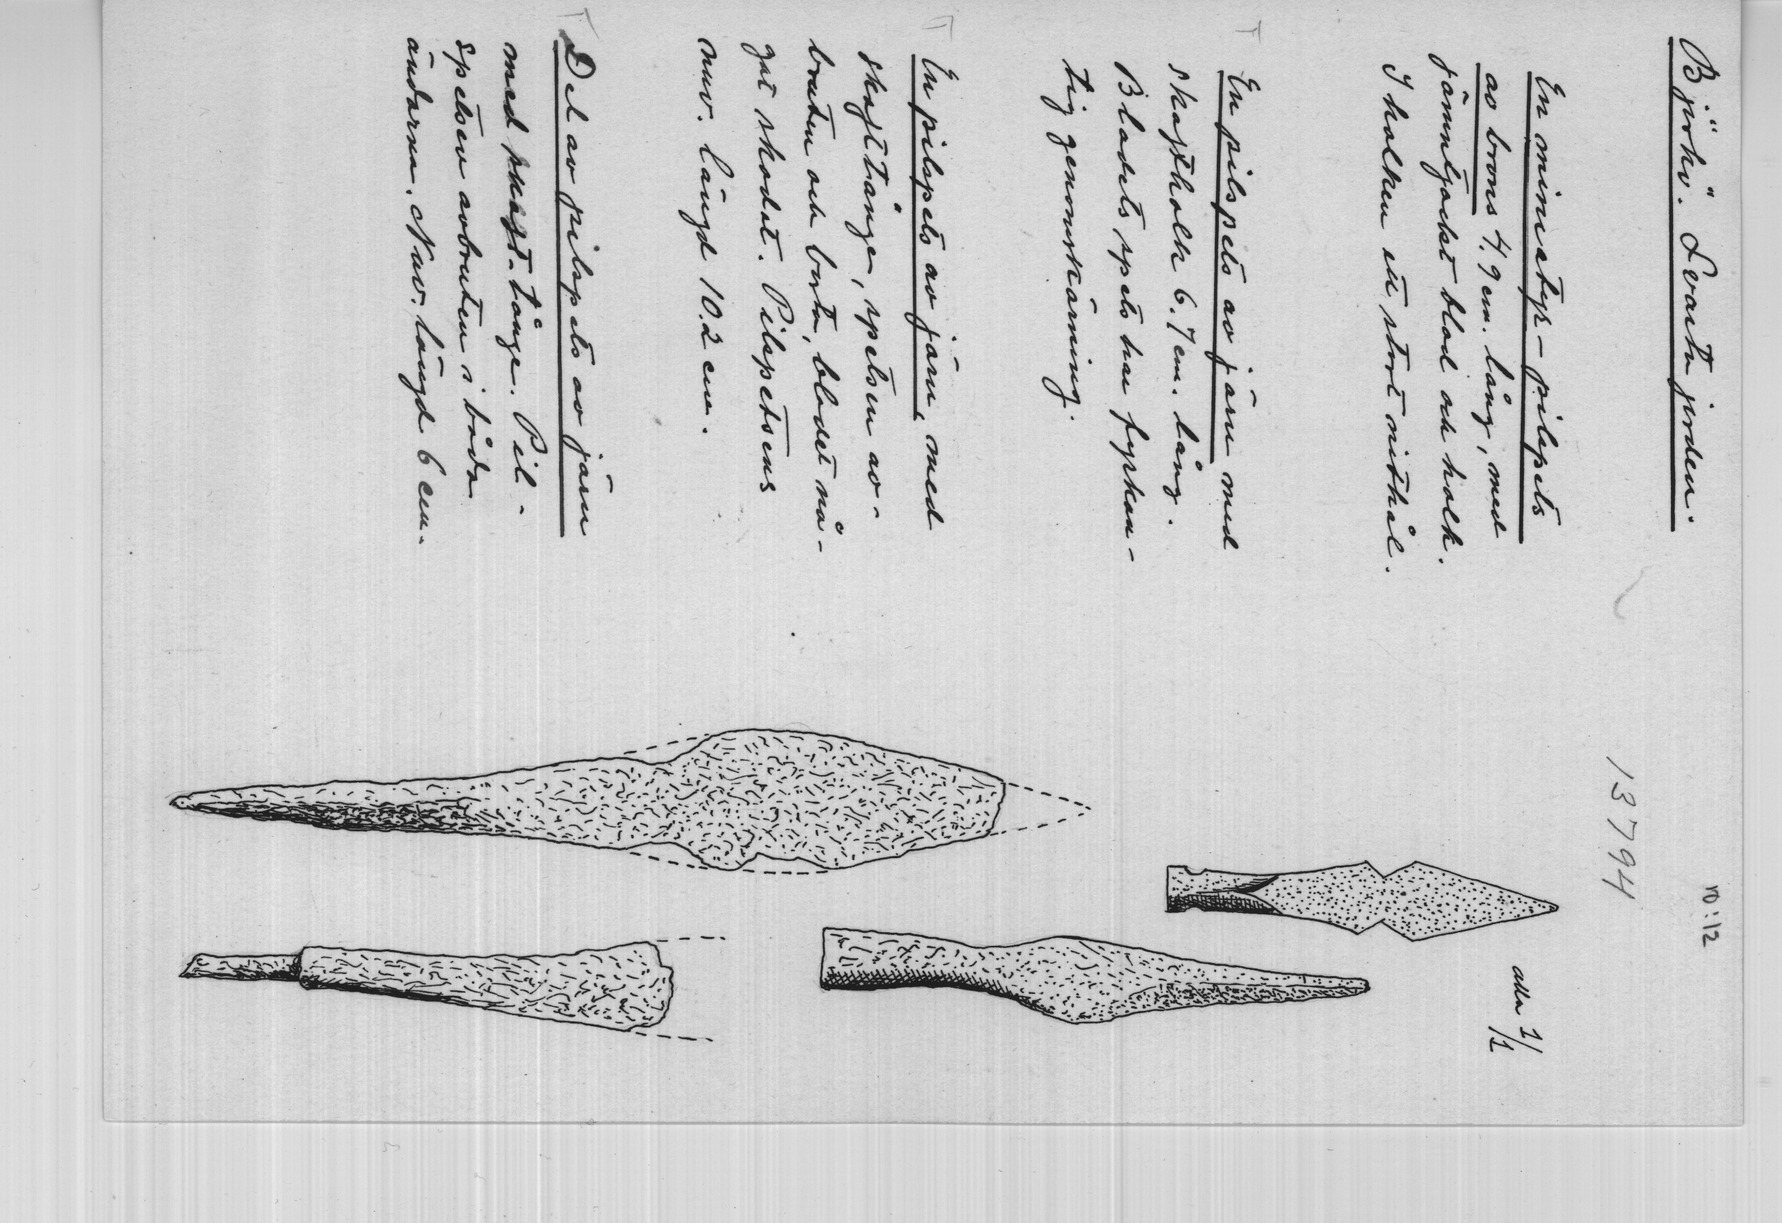 Björkö. Svarta jorden.
no: 12
13794
alla 1/1
En miniatyr-pilspets
av brons 4.9 cm. lång, med
jämntjockt blad och holk.
I holken ett stort nithål.
En pilspets av järn med
skaftholk 6.7 cm. lång.
Bladets spets har fyrkan-
tig genomskärning.
En pilspets av järn, med
skafttånge, spetsen av-
bruten och borta, bladet nå-
got skadat. Pilspetsens
nuv. längd 10.2 cm.
Del av pilspets av järn
med skaft-tånge. Pil-
spetsen avbruten i båda
ändarna. Nuv. längd 6 cm.